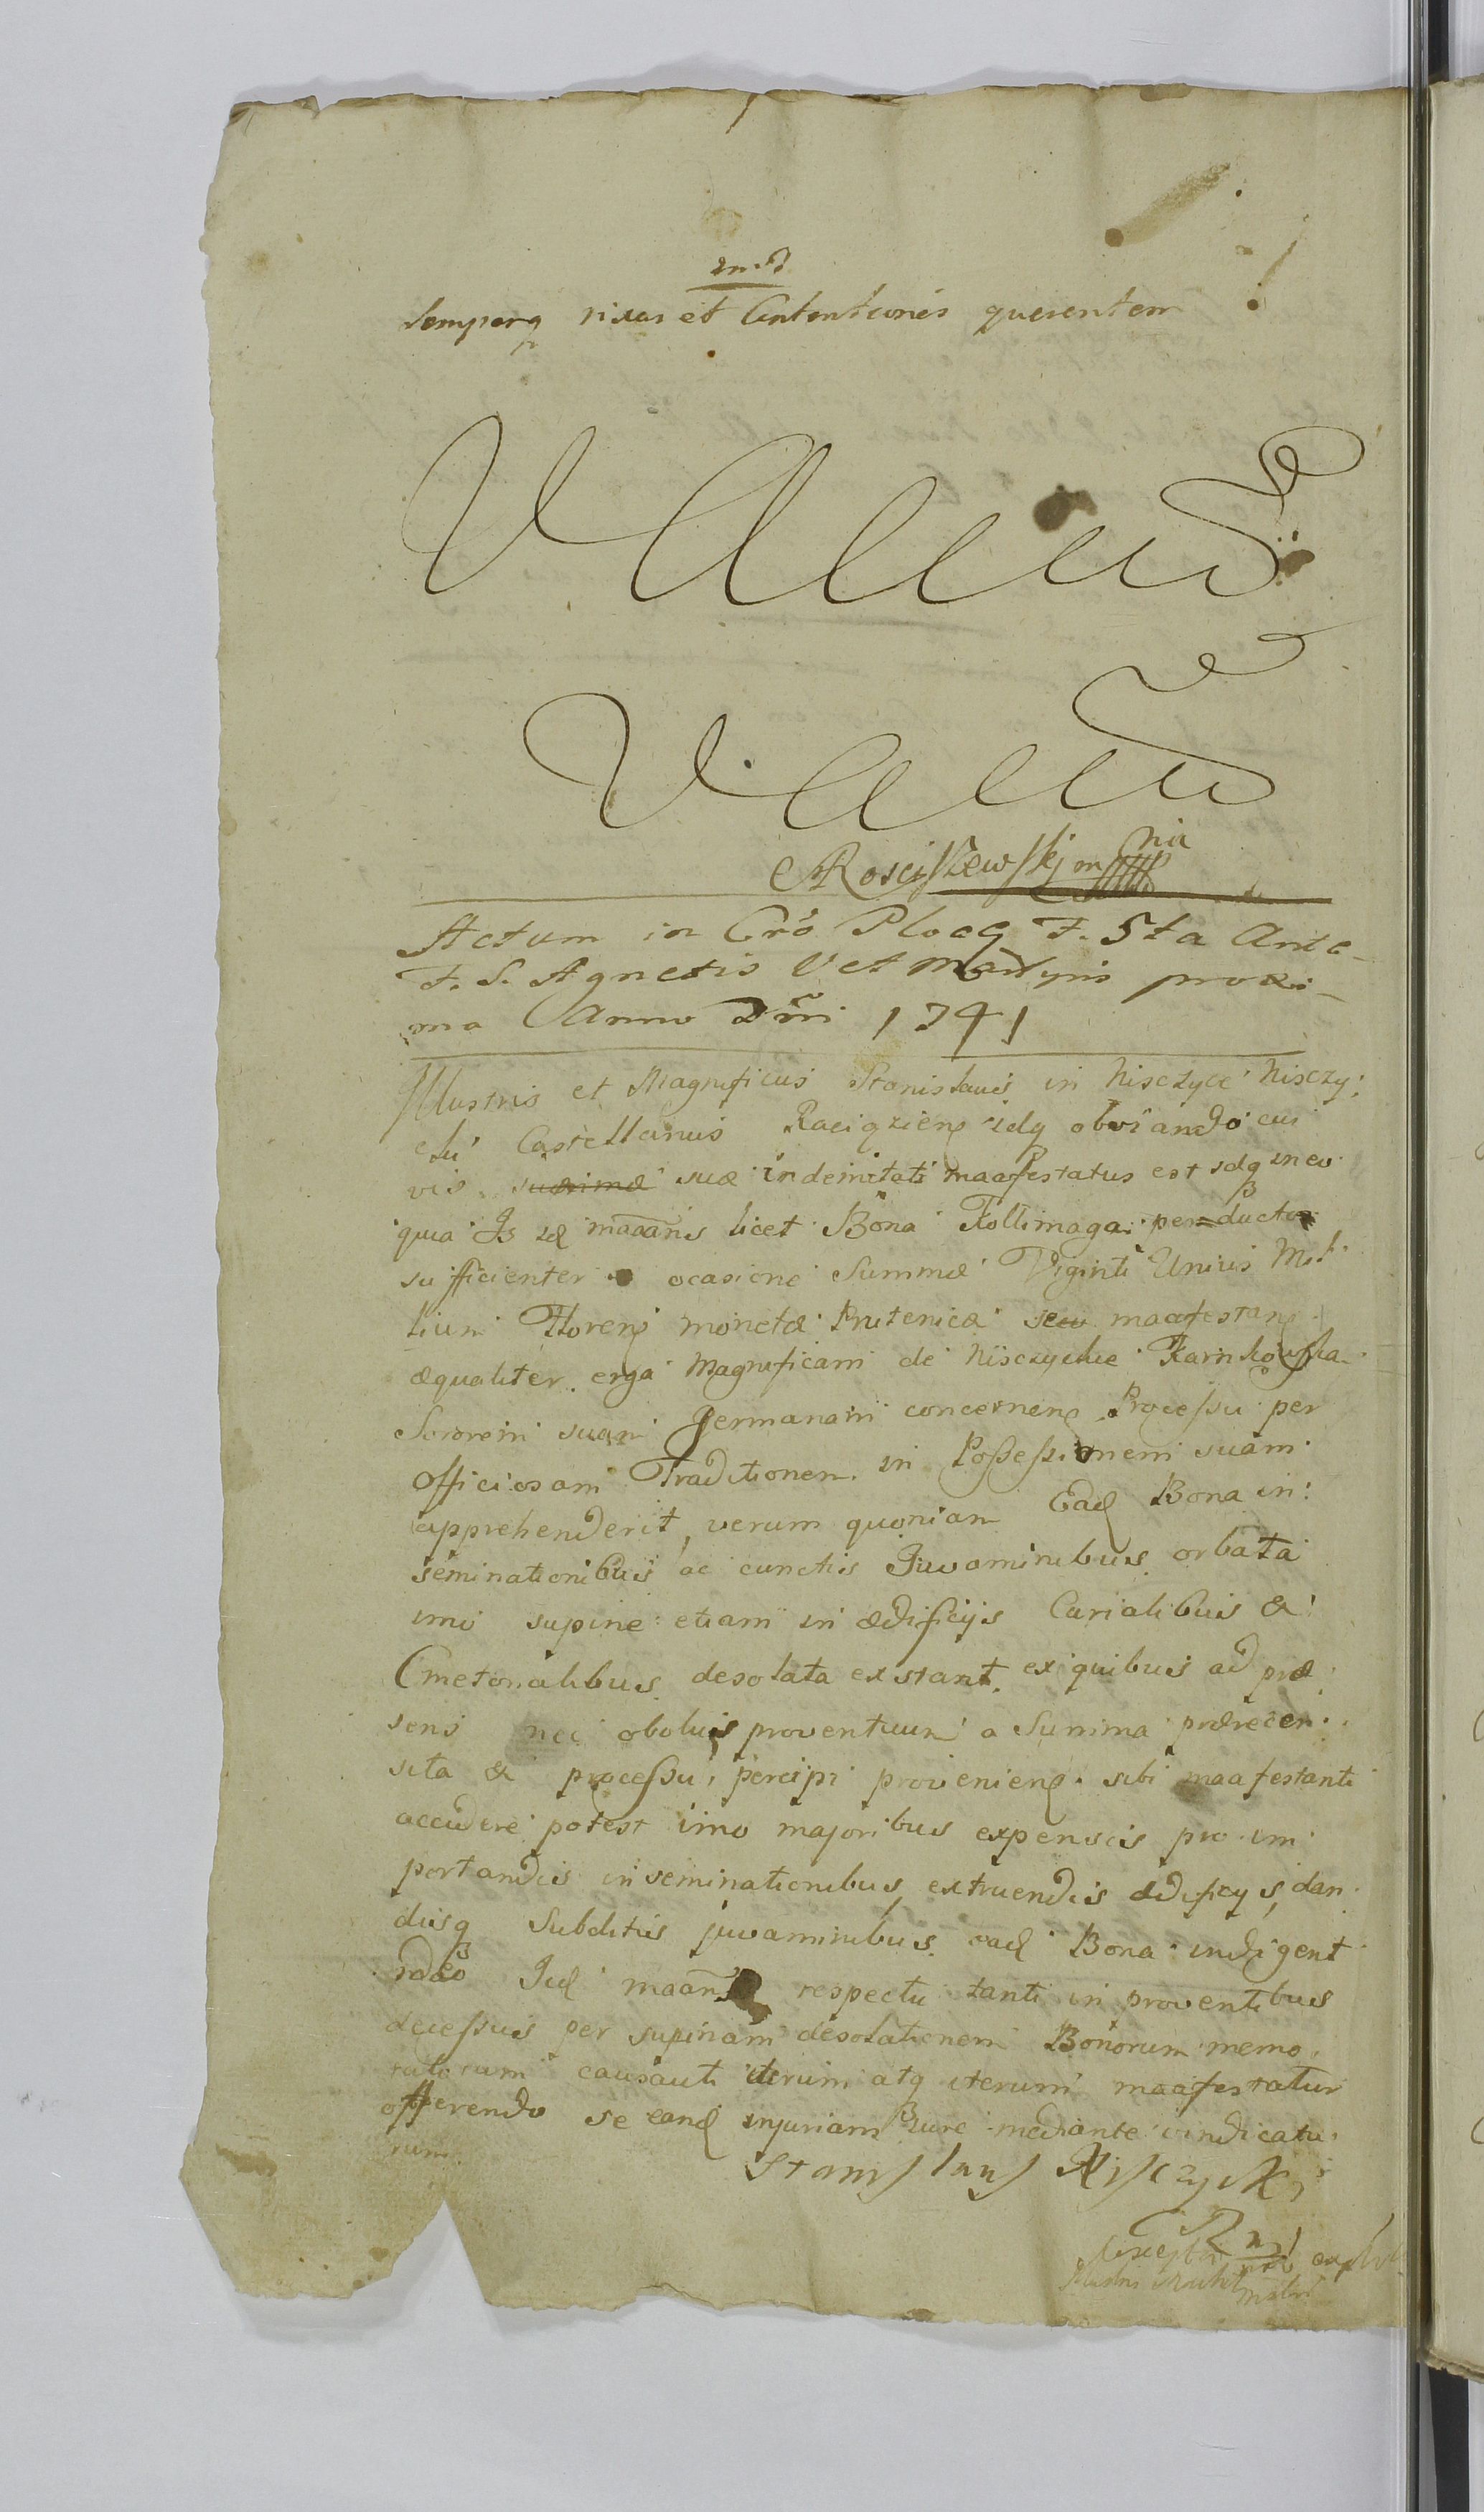 semperq rixas et Contentiones querentem
Vacuu
Vacuu
Rosciszewskj mpria
Actum in Cró Plocq F. 5ta Ante
F. S. Agnetis V et Martyris proxi-
ma Anno Dñi 1741
Illustris et Magnificus Stanislaus in Nisczyce Nisczy:
cki Castellanus Raciązieñ idq obviando cui
vis suæ indemnitati maafestatus est idq in eo
quia Is id maãns licet Bona Kollimaga perductis
sufficienter ocasione Summæ Viginti Unius Mil
lium Floreñ monetæ Prutenicæ seu maafestañ
æqualiter erga Magnificam de Nisczyckie Karnkowska
Sororem suam Germanam concerneñ Processu per
Officiosam Traditionem in Possessionem suam
apprehenderit, verum quoniam Ead Bona in:
seminationibus ac cunctis Juvaminibus orbata
imo supine etiam in ædificijs Curialibus &
Cmetonalibus desolata exstant, ex quibus ad præ
sens nec obolus proventuum a Summa prærecen
sita & processu, percipi provenieñ sibi maafestanti
accidere potest imo majoribus expensis pro im
portandis inseminationibus, extruendis ædificijs, dan
disq Subditis juvaminibus ead Bona indigent
ideo Id maañs respectu tanti in proventibus
decessus per supinam desolationem Bonorum memo
ratorum causati iterum atq iterum maafestatur
offerendo se eand injuriam Jure mediante vindicatu
rum
Stanislaus Nisczycki